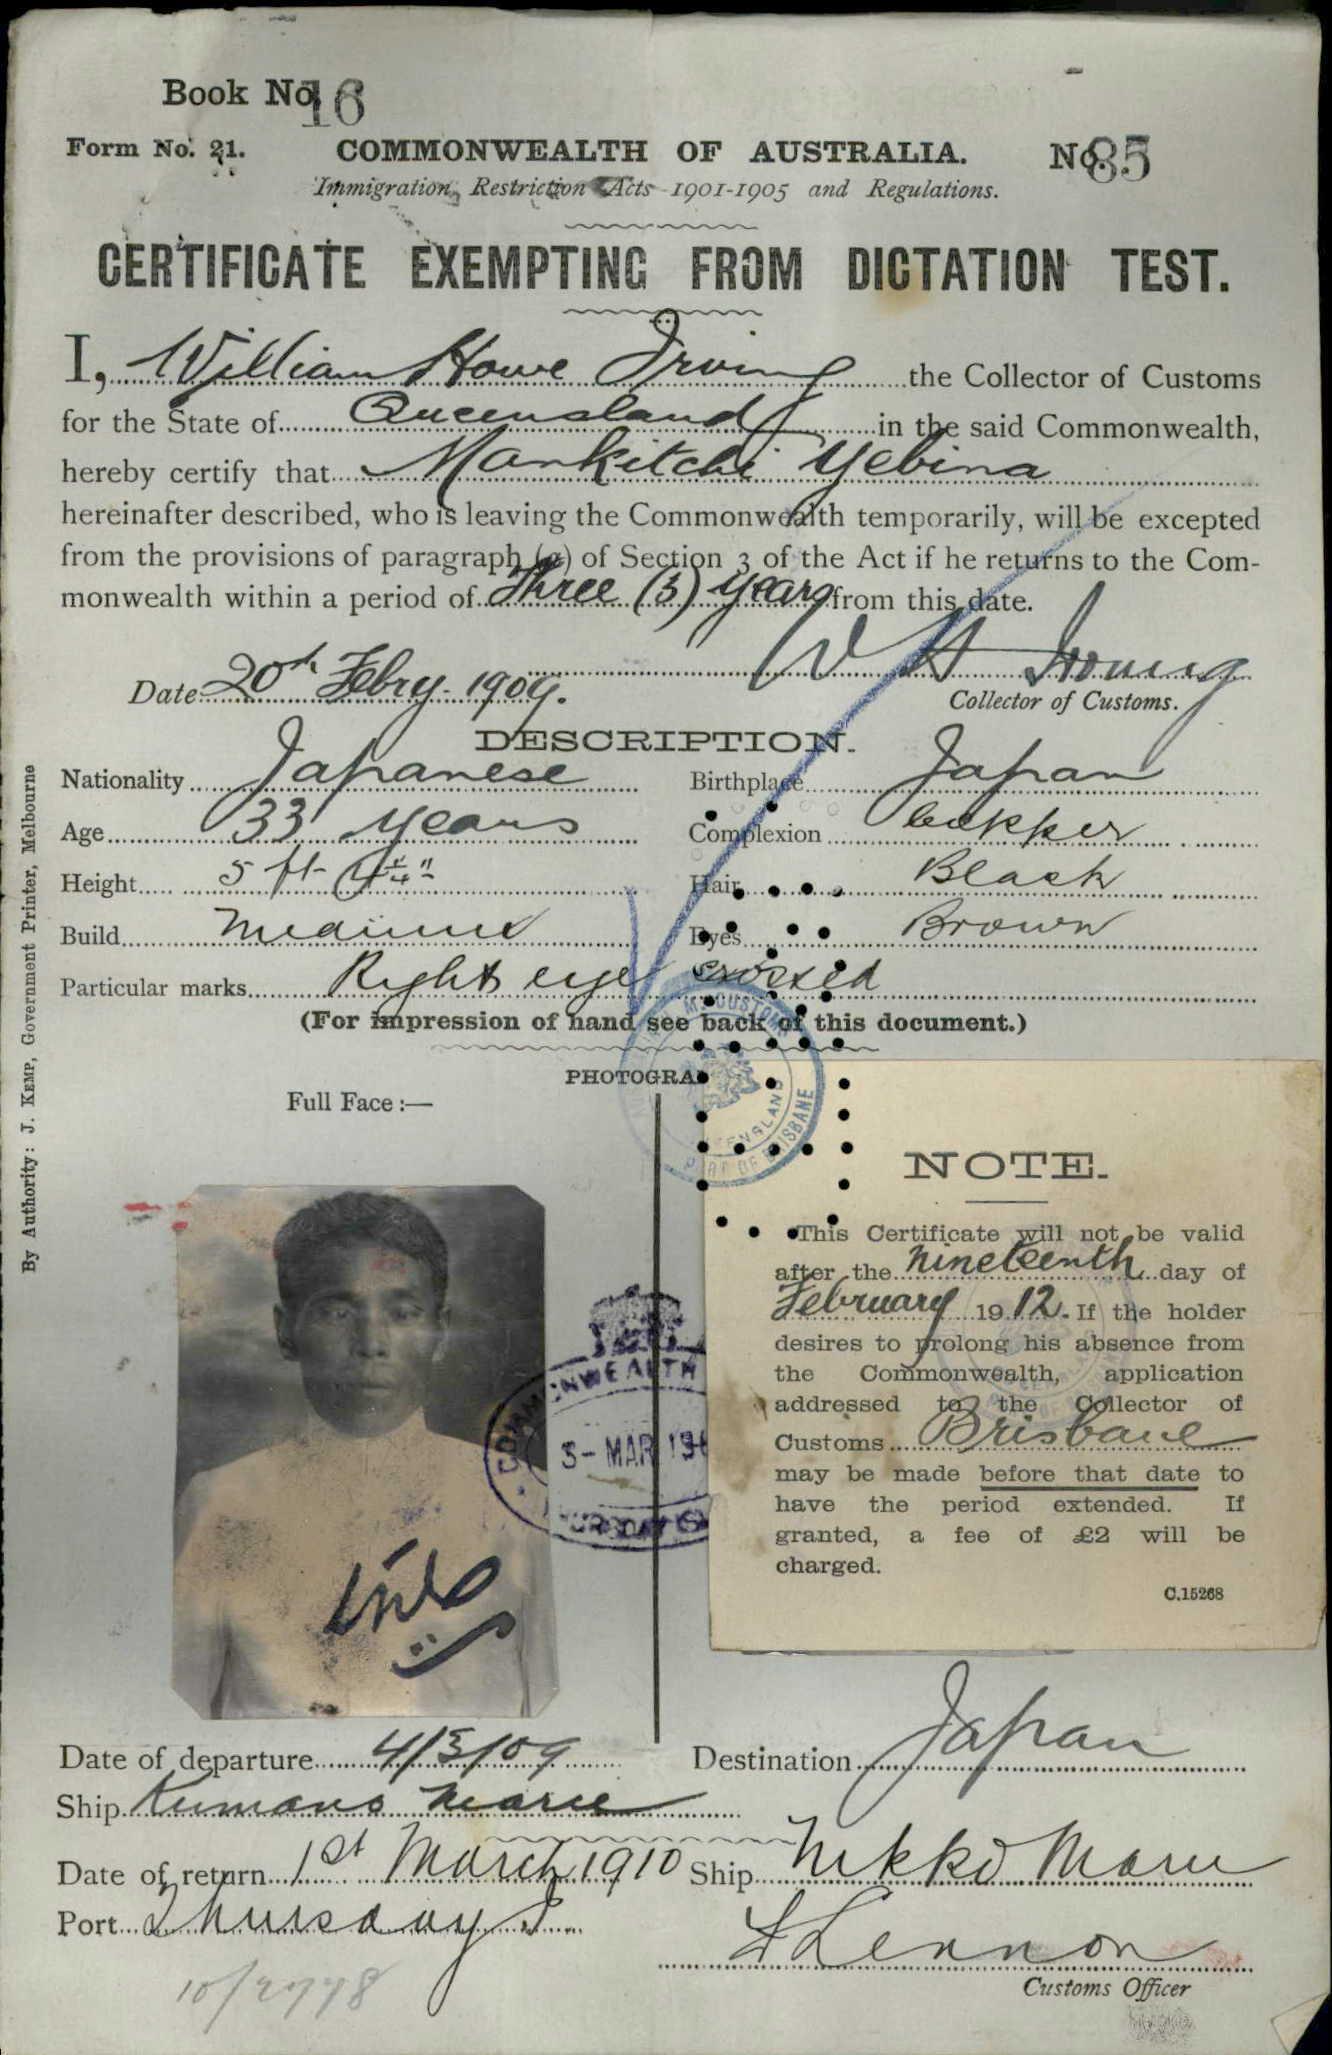 Book No. 16
Form No. 21. COMMONWEALTH OF AUSTRALIA. No. 85
Immigration Restriction Acts 1901-1905 and Regulations.
CERTIFICATE EXEMPTING FROM DICTATION TEST.
I, William Howe Irving the Collector of Customs
for the State of Queensland in the said Commonwealth,
hereby certify that Mankitchi Yebina
hereinafter described, who is leaving the Commonwealth temporarily, will be excepted
from the provisions of paragraph (a) of Section 3 of the Act if he returns to the Com-
monwealth within a period of Three (3) years from this date.
W H Irving
Date 20th Febry. 1909.
Collector of Customs.
DESCRIPTION.
Nationality Japanese Birthplace Japan
Age 33 years Complexion Copper
Height 5 ft 4¼" Hair Black
Build Medium Eyes Brown
Particular marks Right eye crossed
(For impression of hand see back of this document.)
PHOTOGRA
Full Face :—
CUSTOMS
PORT OF BRISBANE
COMMONWEALTH
3- MAR 19
THURSDAY IS
NOTE.
This Certificate will not be valid
after the nineteenth day of
February 1912. If the holder
desires to prolong his absence from
the Commonwealth, application
addressed to the Collector of
Customs Brisbane
may be made before that date to
have the period extended. If
granted, a fee of £2 will be
charged.
C.15268
Date of departure 4/3/09 Destination Japan
Ship Kumano Marie
Date of return 1st March 1910 Ship Nikko Maru
Port Thursday I.
Lennon
Customs Officer
10/2778
By Authority: J. KEMP, Government Printer, Melbourne